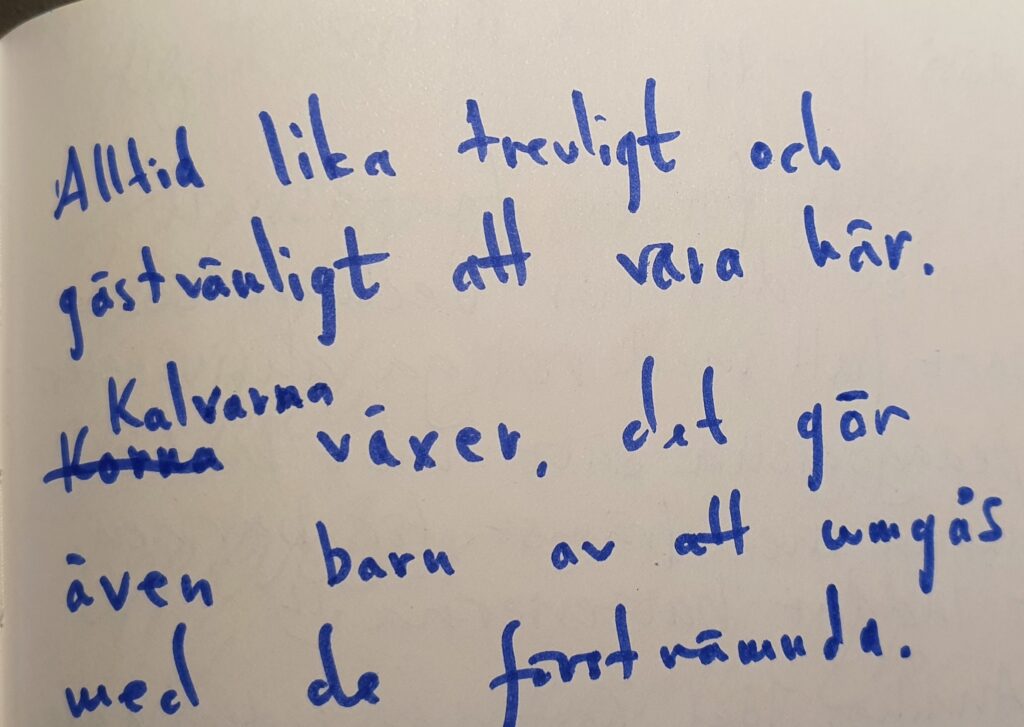 Alltid lika trevligt och
gästvänligt att vara här.
Kalvarna
Korna växer, det gör
även barn av att umgås
med de förstnämnda.